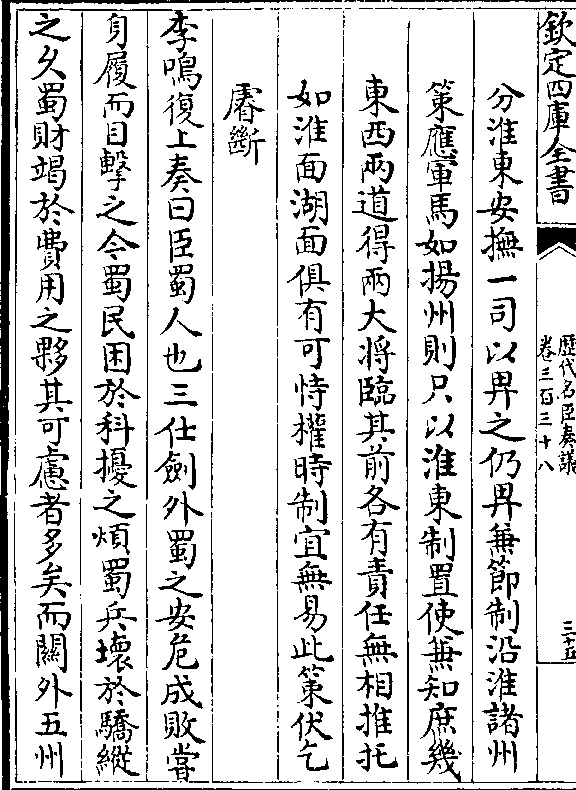 欽定四庫全書
歷代名臣奏議
卷三百三十八
三十五
分淮東安撫一司以畀之仍畀兼節制沿淮諸州
策應軍馬如揚州則只以淮東制置使兼知庶幾
東西兩道得兩大將臨其前各有責任無相推托
如淮面湖面俱有可恃權時制宜無易此策伏乞
睿斷
李鳴復上奏曰臣蜀人也三仕劍外蜀之安危成敗嘗
身履而目擊之今蜀民困於科擾之煩蜀兵壞於驕縱
之久蜀財竭於費用之夥其可慮者多矣而關外五州